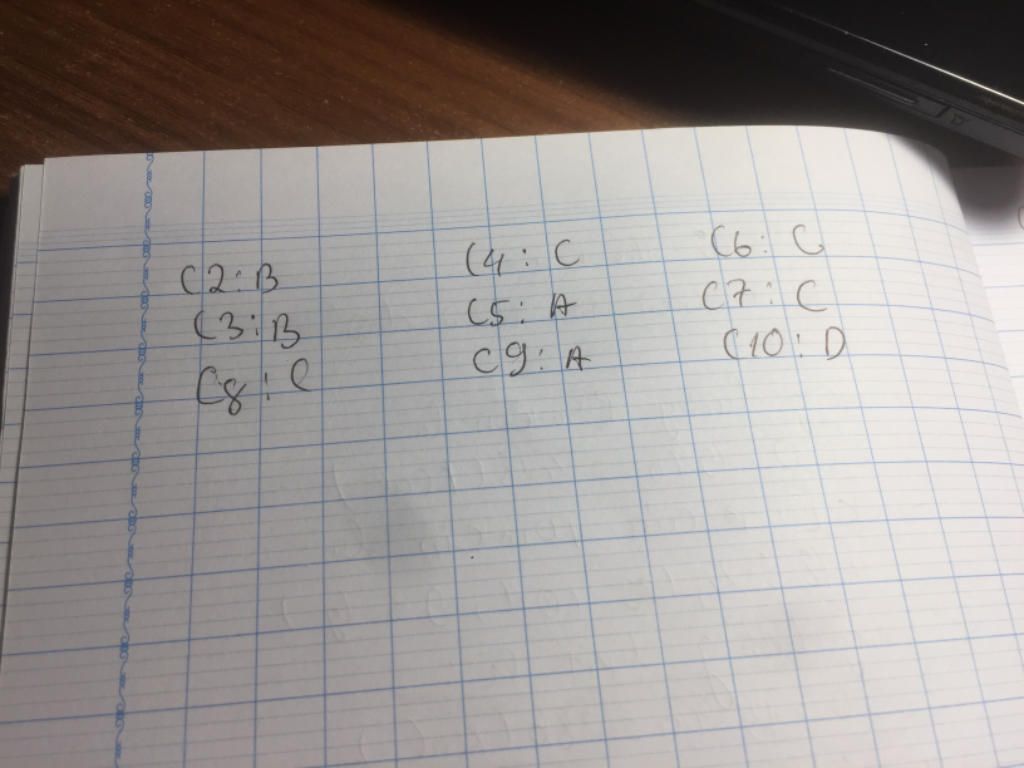 C2:B C4: C C6: C
C3:B C5: A C7: C
C8: C C9: A C10: D